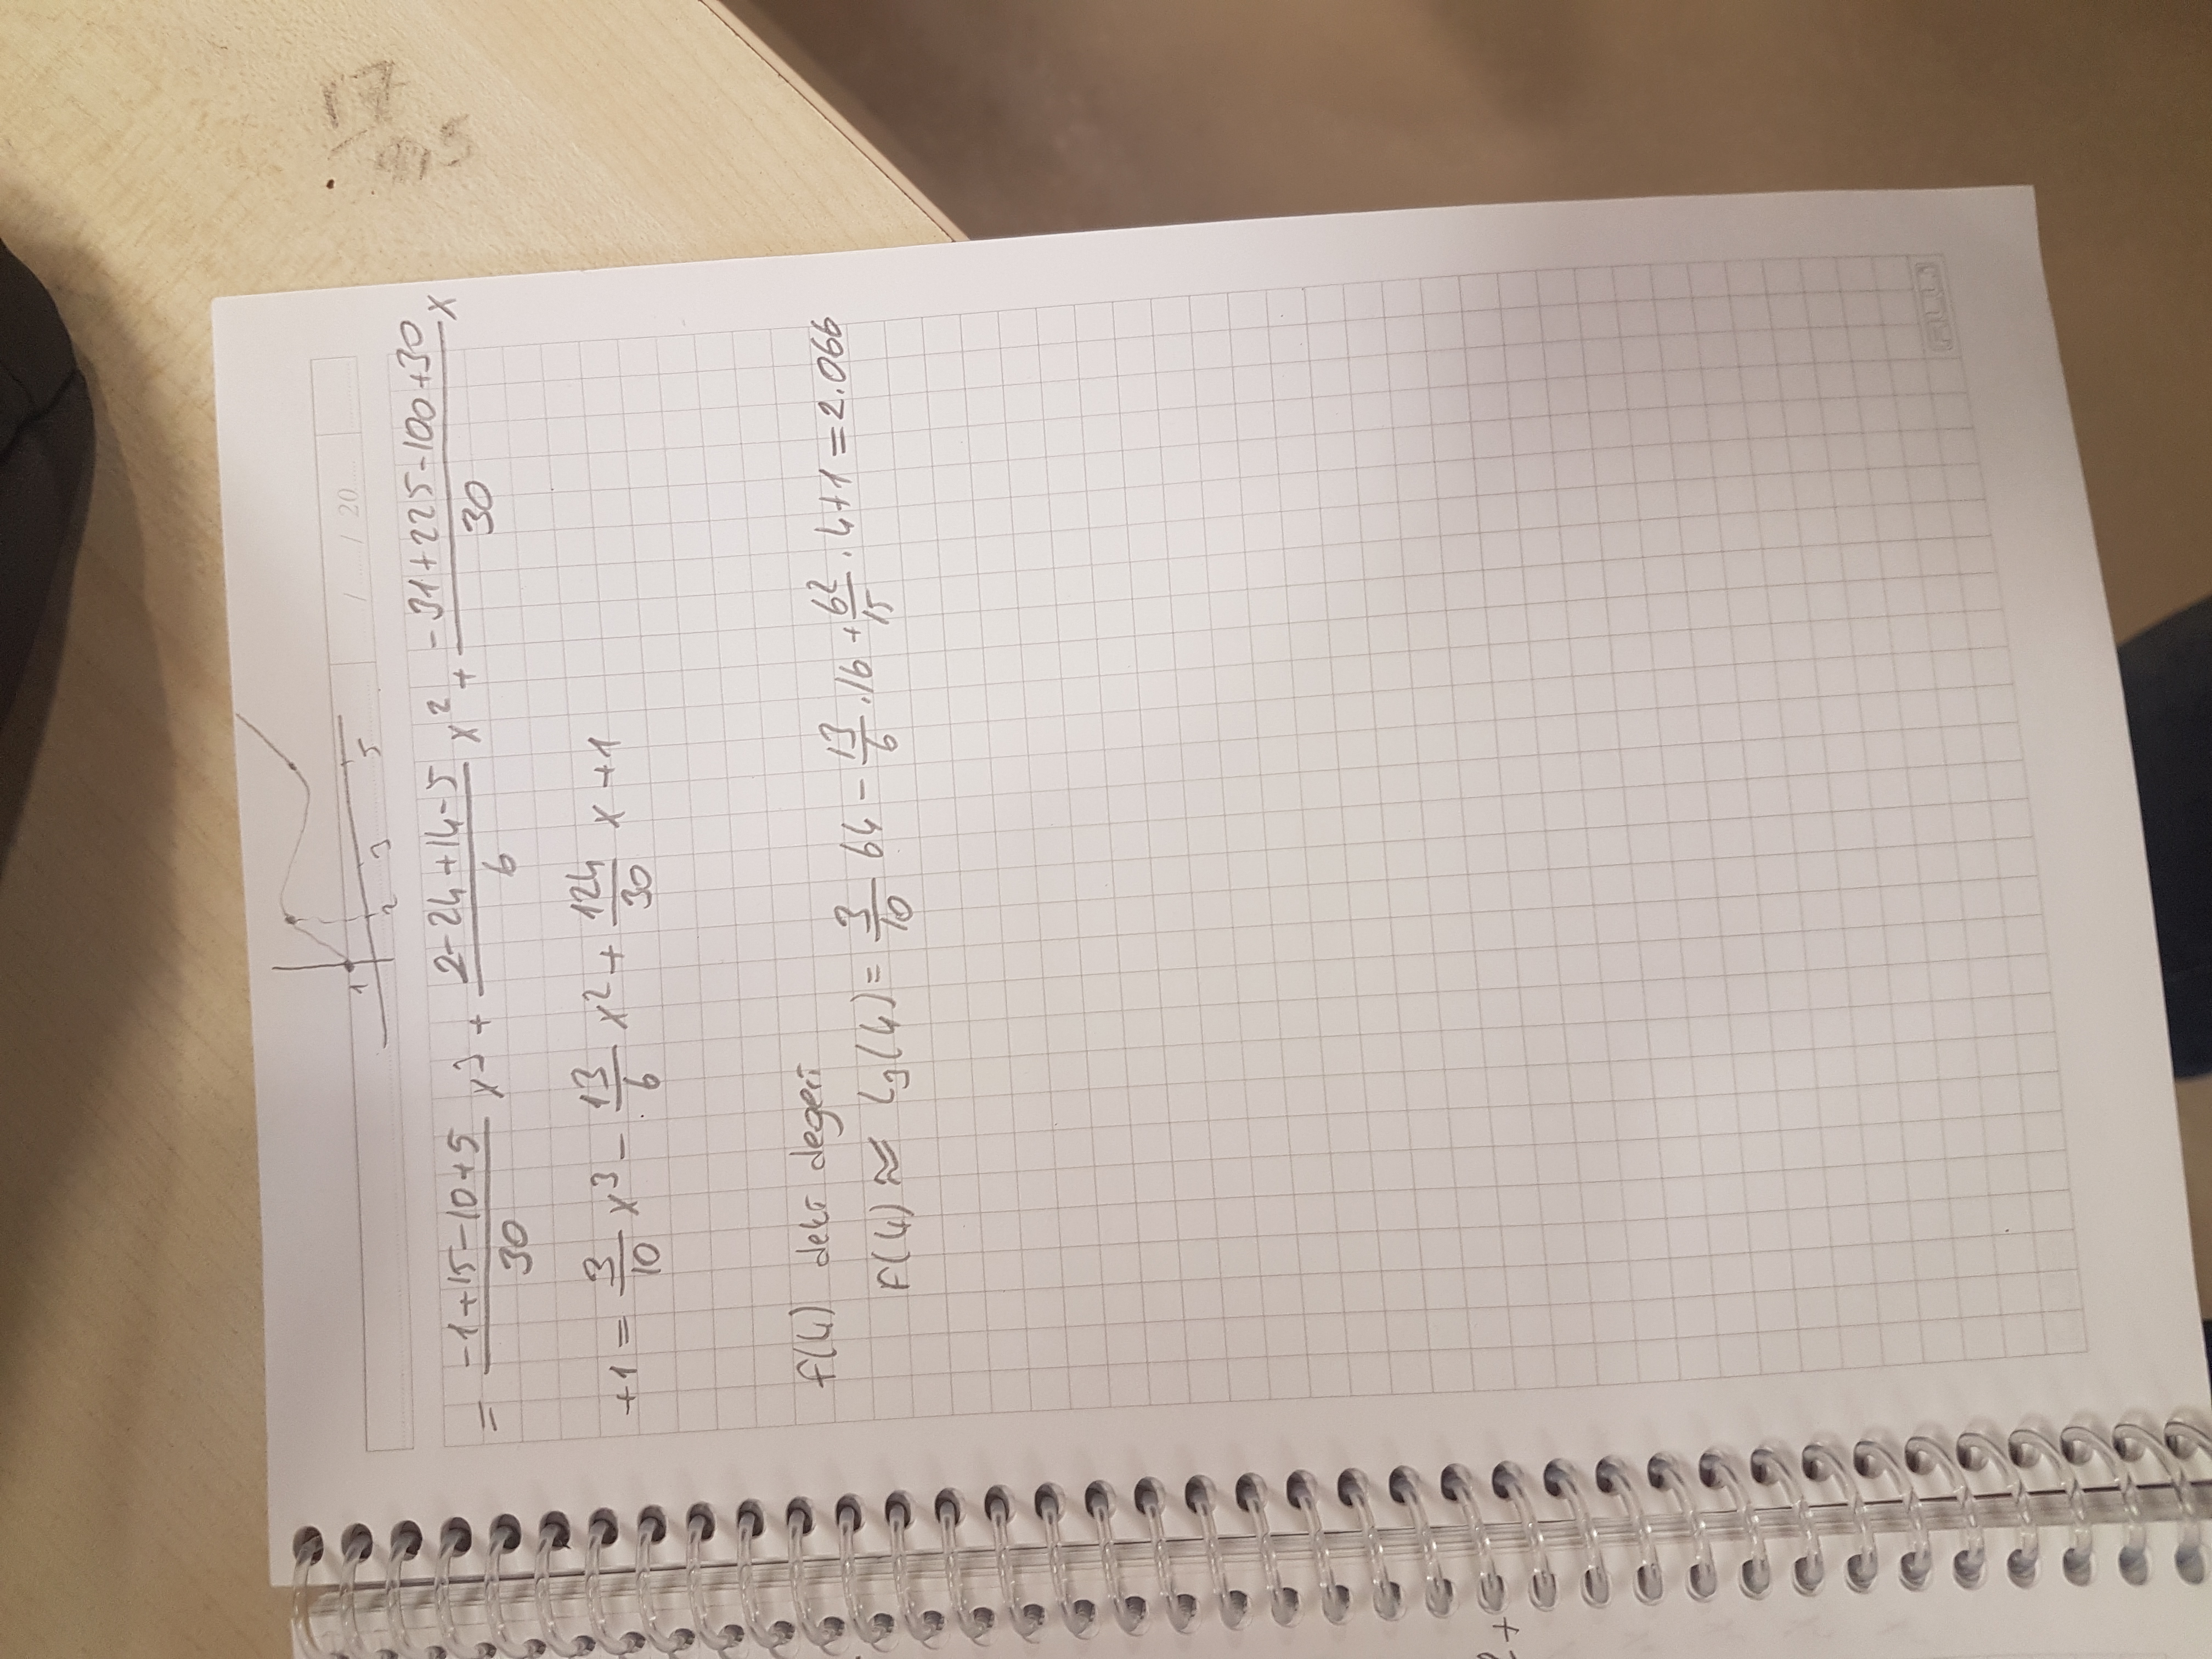 1 2 3 5
/ / 20
= (-1+15-10+5)/30 x³ + (2-24+14-5)/6 x² + (-31+225-100+30)/30 x
+1 = 3/10 x³ - 13/6 x² + 124/30 x + 1
f(4) deki değeri
f(4) ≈ L₃(4) = 3/10 64 - 13/6 .16 + 62/15 . 4+1 = 2.066
2+